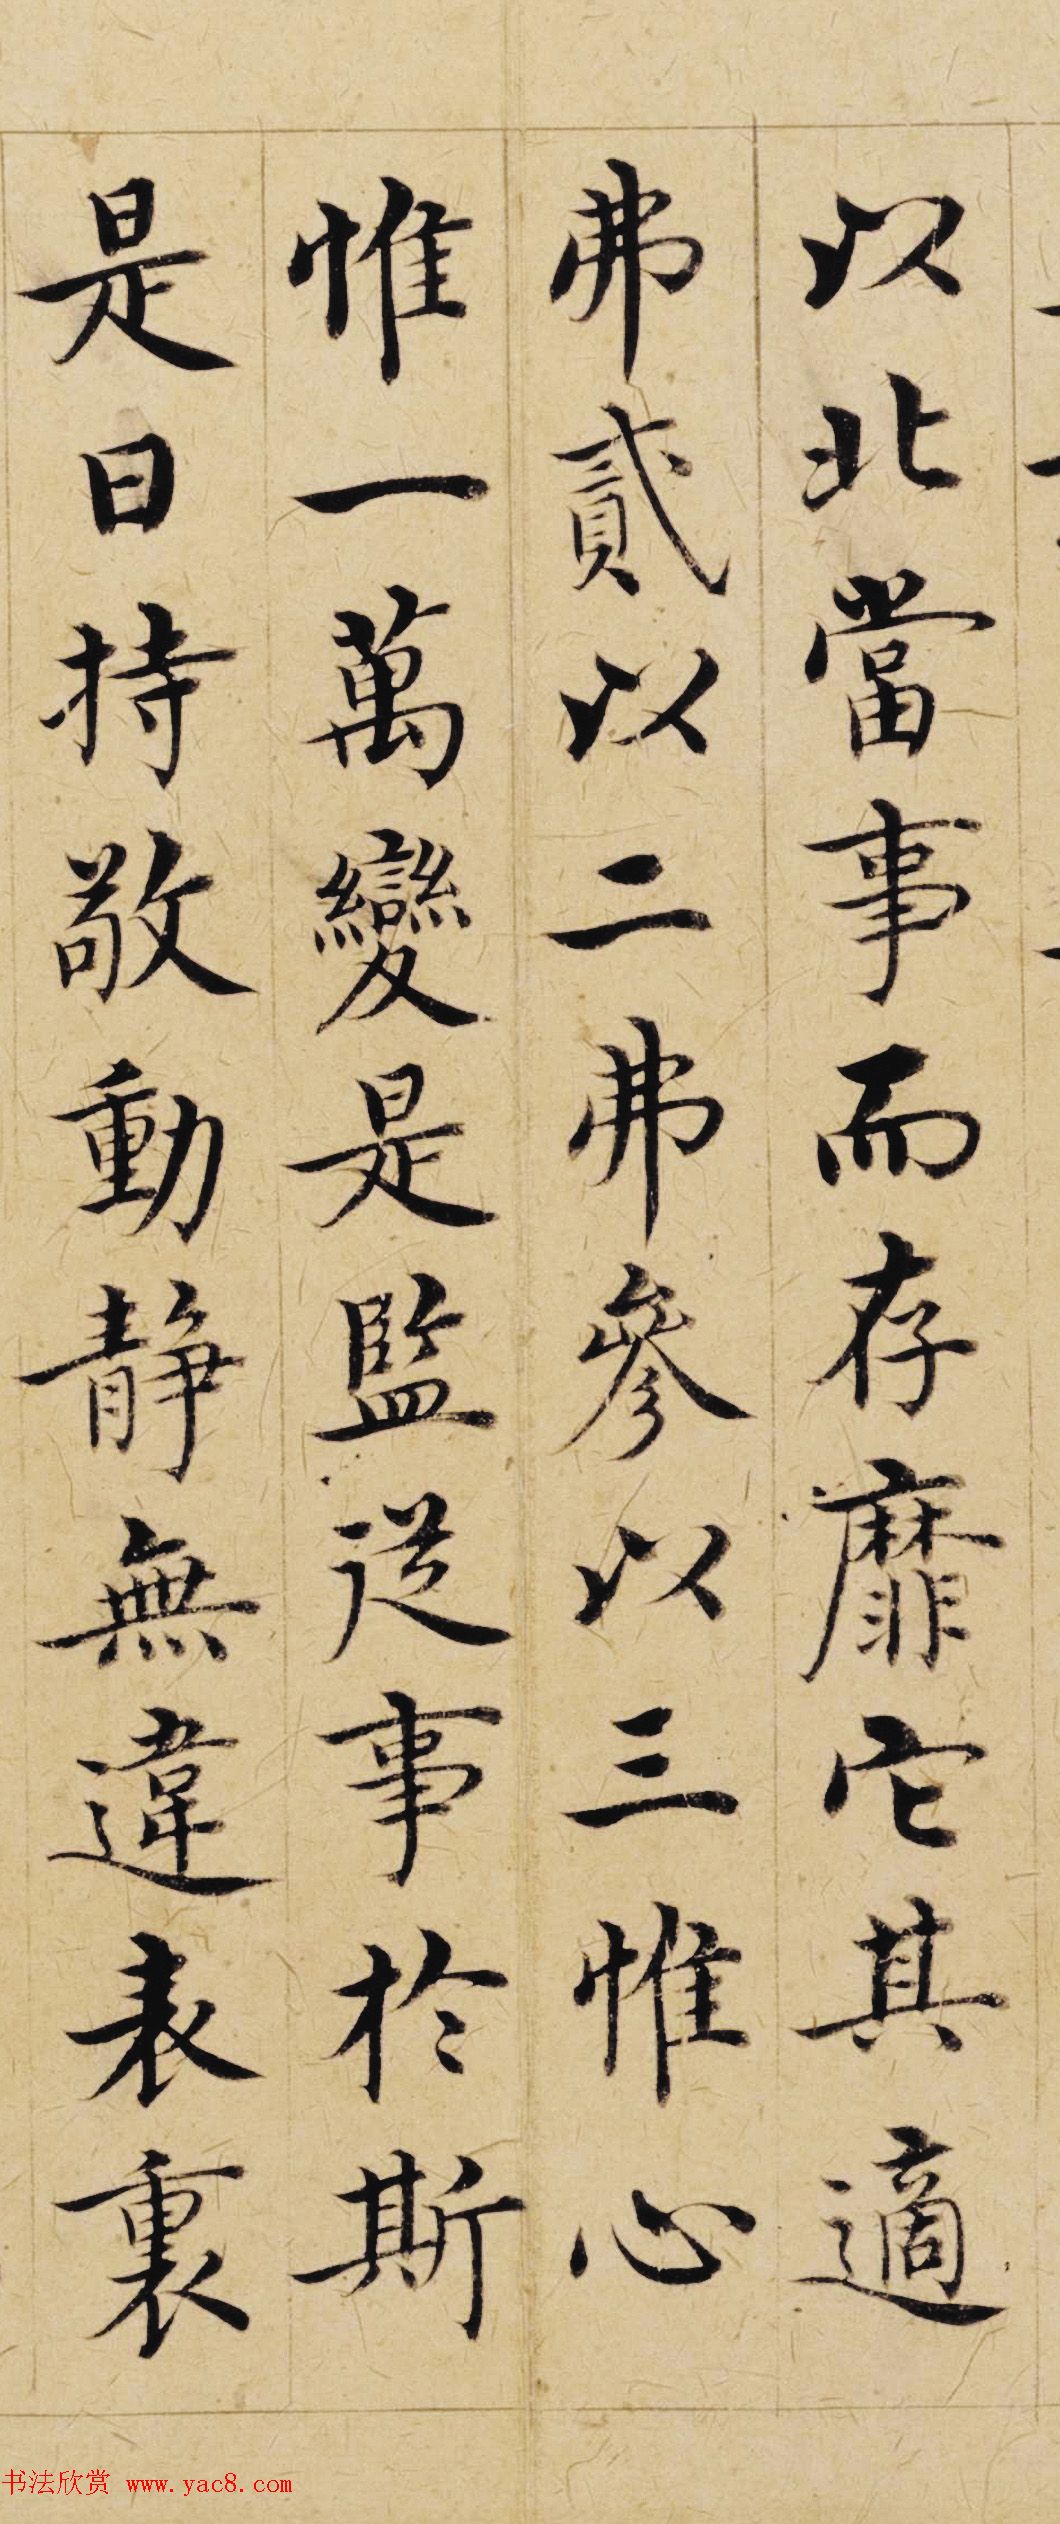 以北當事而存靡它其適
弗貳以二弗參以三惟心
惟一萬變是監從事於斯
是曰持敬動静無違表裏
书法欣赏 www.yac8.com